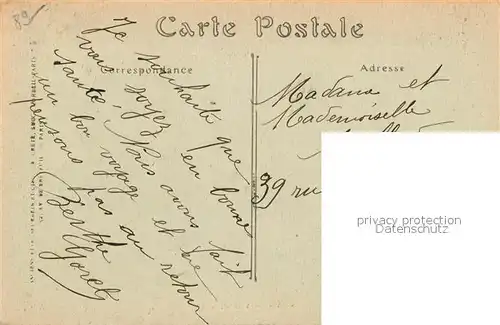 89
Carte Postale
Correspondance
Adresse
Je souhaite que
vous soyez en bonne
santé. Nous avons fait
un bon voyage et ne
pensons pas au retour
Berthe
Madame et
Mademoiselle
39 ru
privacy protection
Datenschutz